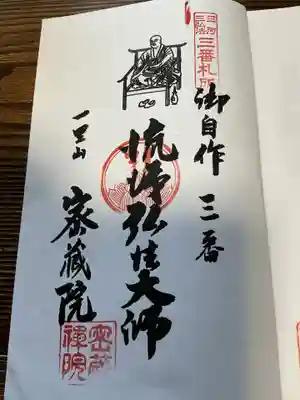 三河三弘法
三番札所
御自作 三番
流涕弘法大師
一里山 密蔵院